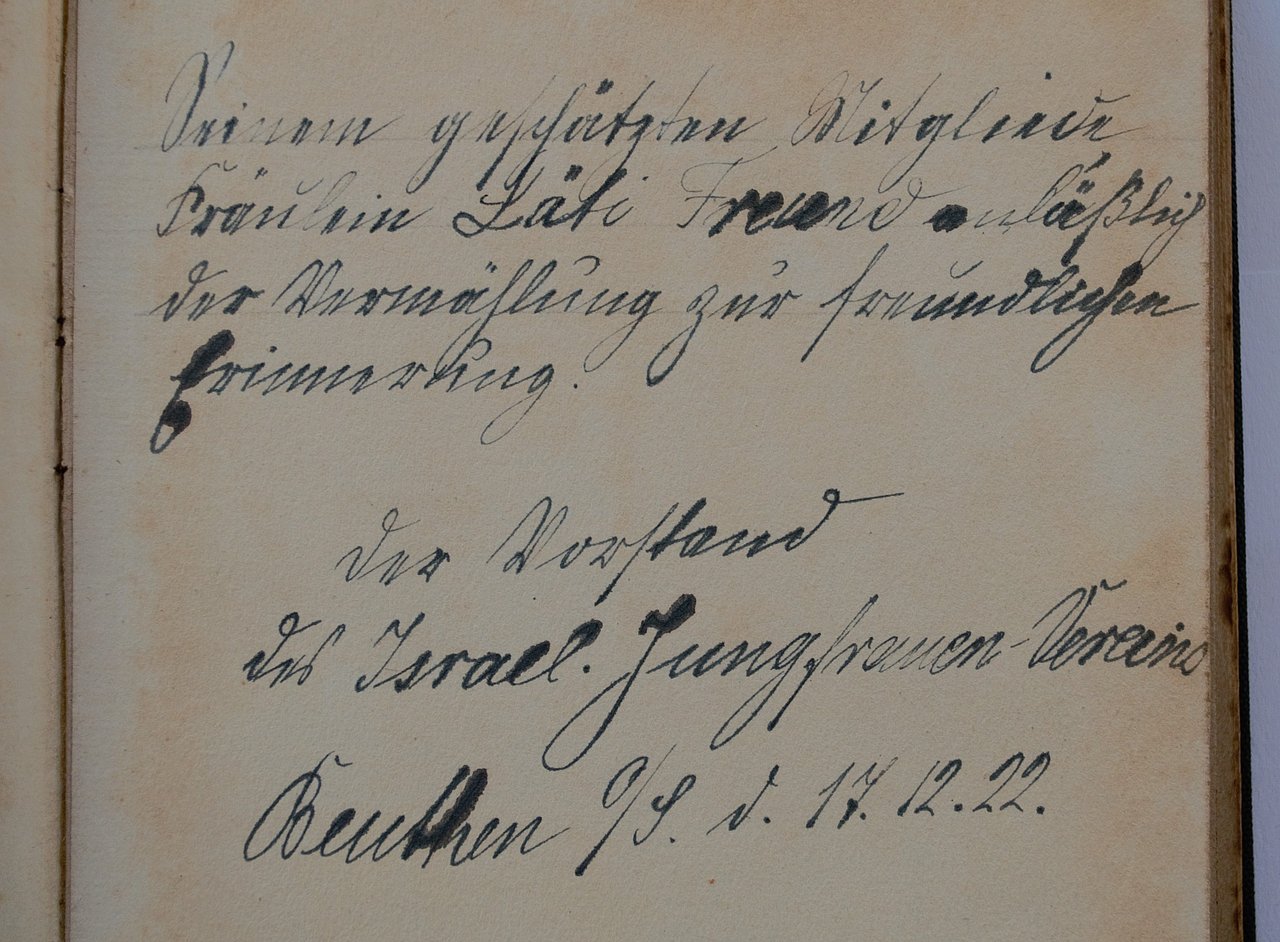 Seinem geschätzten Mitgliede
Fräulein Käti Freund anläßlich
der Vermählung zur freundlichen
Erinnerung.
Der Vorstand
des Israel. Jungfrauen-Vereins
Beuthen O/S. d. 17. 12. 22.